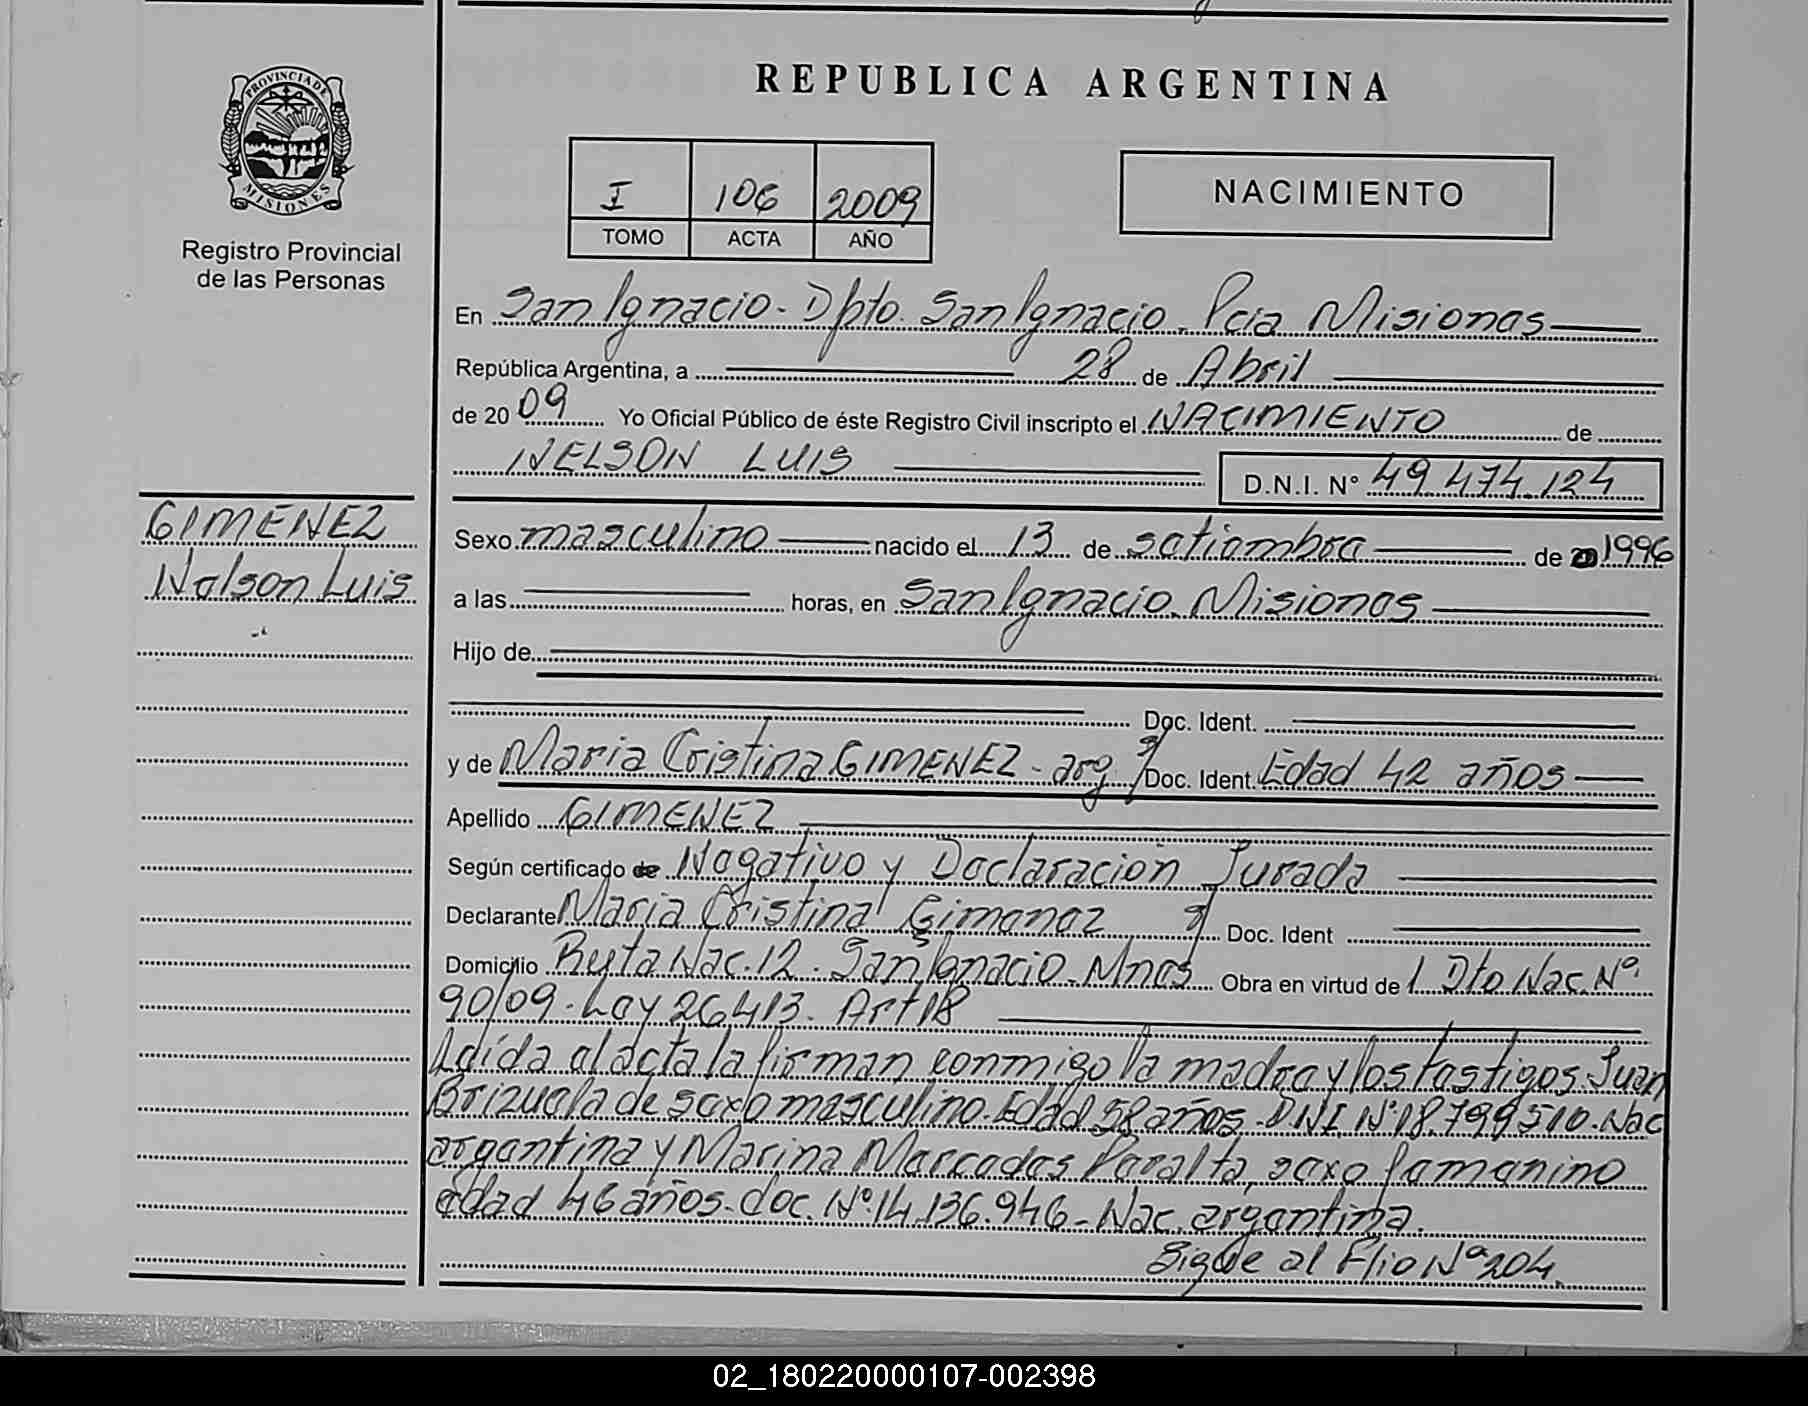 REPUBLICA ARGENTINA
PROVINCIA DE
MISIONES
Registro Provincial
de las Personas
I 106 2009
TOMO ACTA AÑO
NACIMIENTO
En San Ignacio - Dpto. San Ignacio. Pcia Misiones
República Argentina, a 28 de Abril
de 2009 Yo Oficial Público de éste Registro Civil inscripto el NACIMIENTO de
NELSON LUIS D.N.I. N° 49.474.124
GIMENEZ
Nelson Luis
Sexo masculino nacido el 13 de setiembre de 1996
a las horas, en San Ignacio. Misiones
Hijo de
Doc. Ident.
y de Maria Cristina GIMENEZ - arg. Doc. Ident. Edad 42 años
Apellido GIMENEZ
Según certificado de Negativo y Declaración Jurada
Declarante Maria Cristina Gimenez Doc. Ident
Domicilio Ruta Nac. 12. San Ignacio. Mnes Obra en virtud de l Dto Nac. Nº
90/09. Ley 26413. Art 18
Leída el acta la firman conmigo la madre y los testigos. Juan
Brizuela de sexo masculino. Edad 58 años. DNI. Nº 18.799510. Nac
argentina y Marina Mercedes Peralta, sexo femenino
edad 46 años. doc. Nº 14.136.946 - Nac. argentina.
Sigue al Flio Nº 204.
02_180220000107-002398